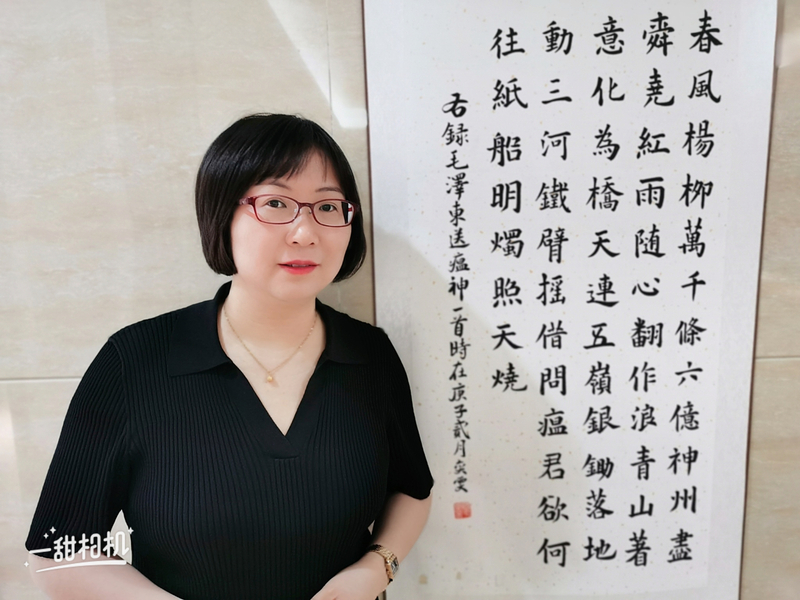 春風楊柳萬千條六億神州盡
舜堯紅雨随心翻作浪青山著
意化為橋天連五嶺銀鋤落地
動三河鐵臂摇借問瘟君欲何
往紙船明燭照天燒
右録毛澤東送瘟神一首時在庚子貳月
一甜相机